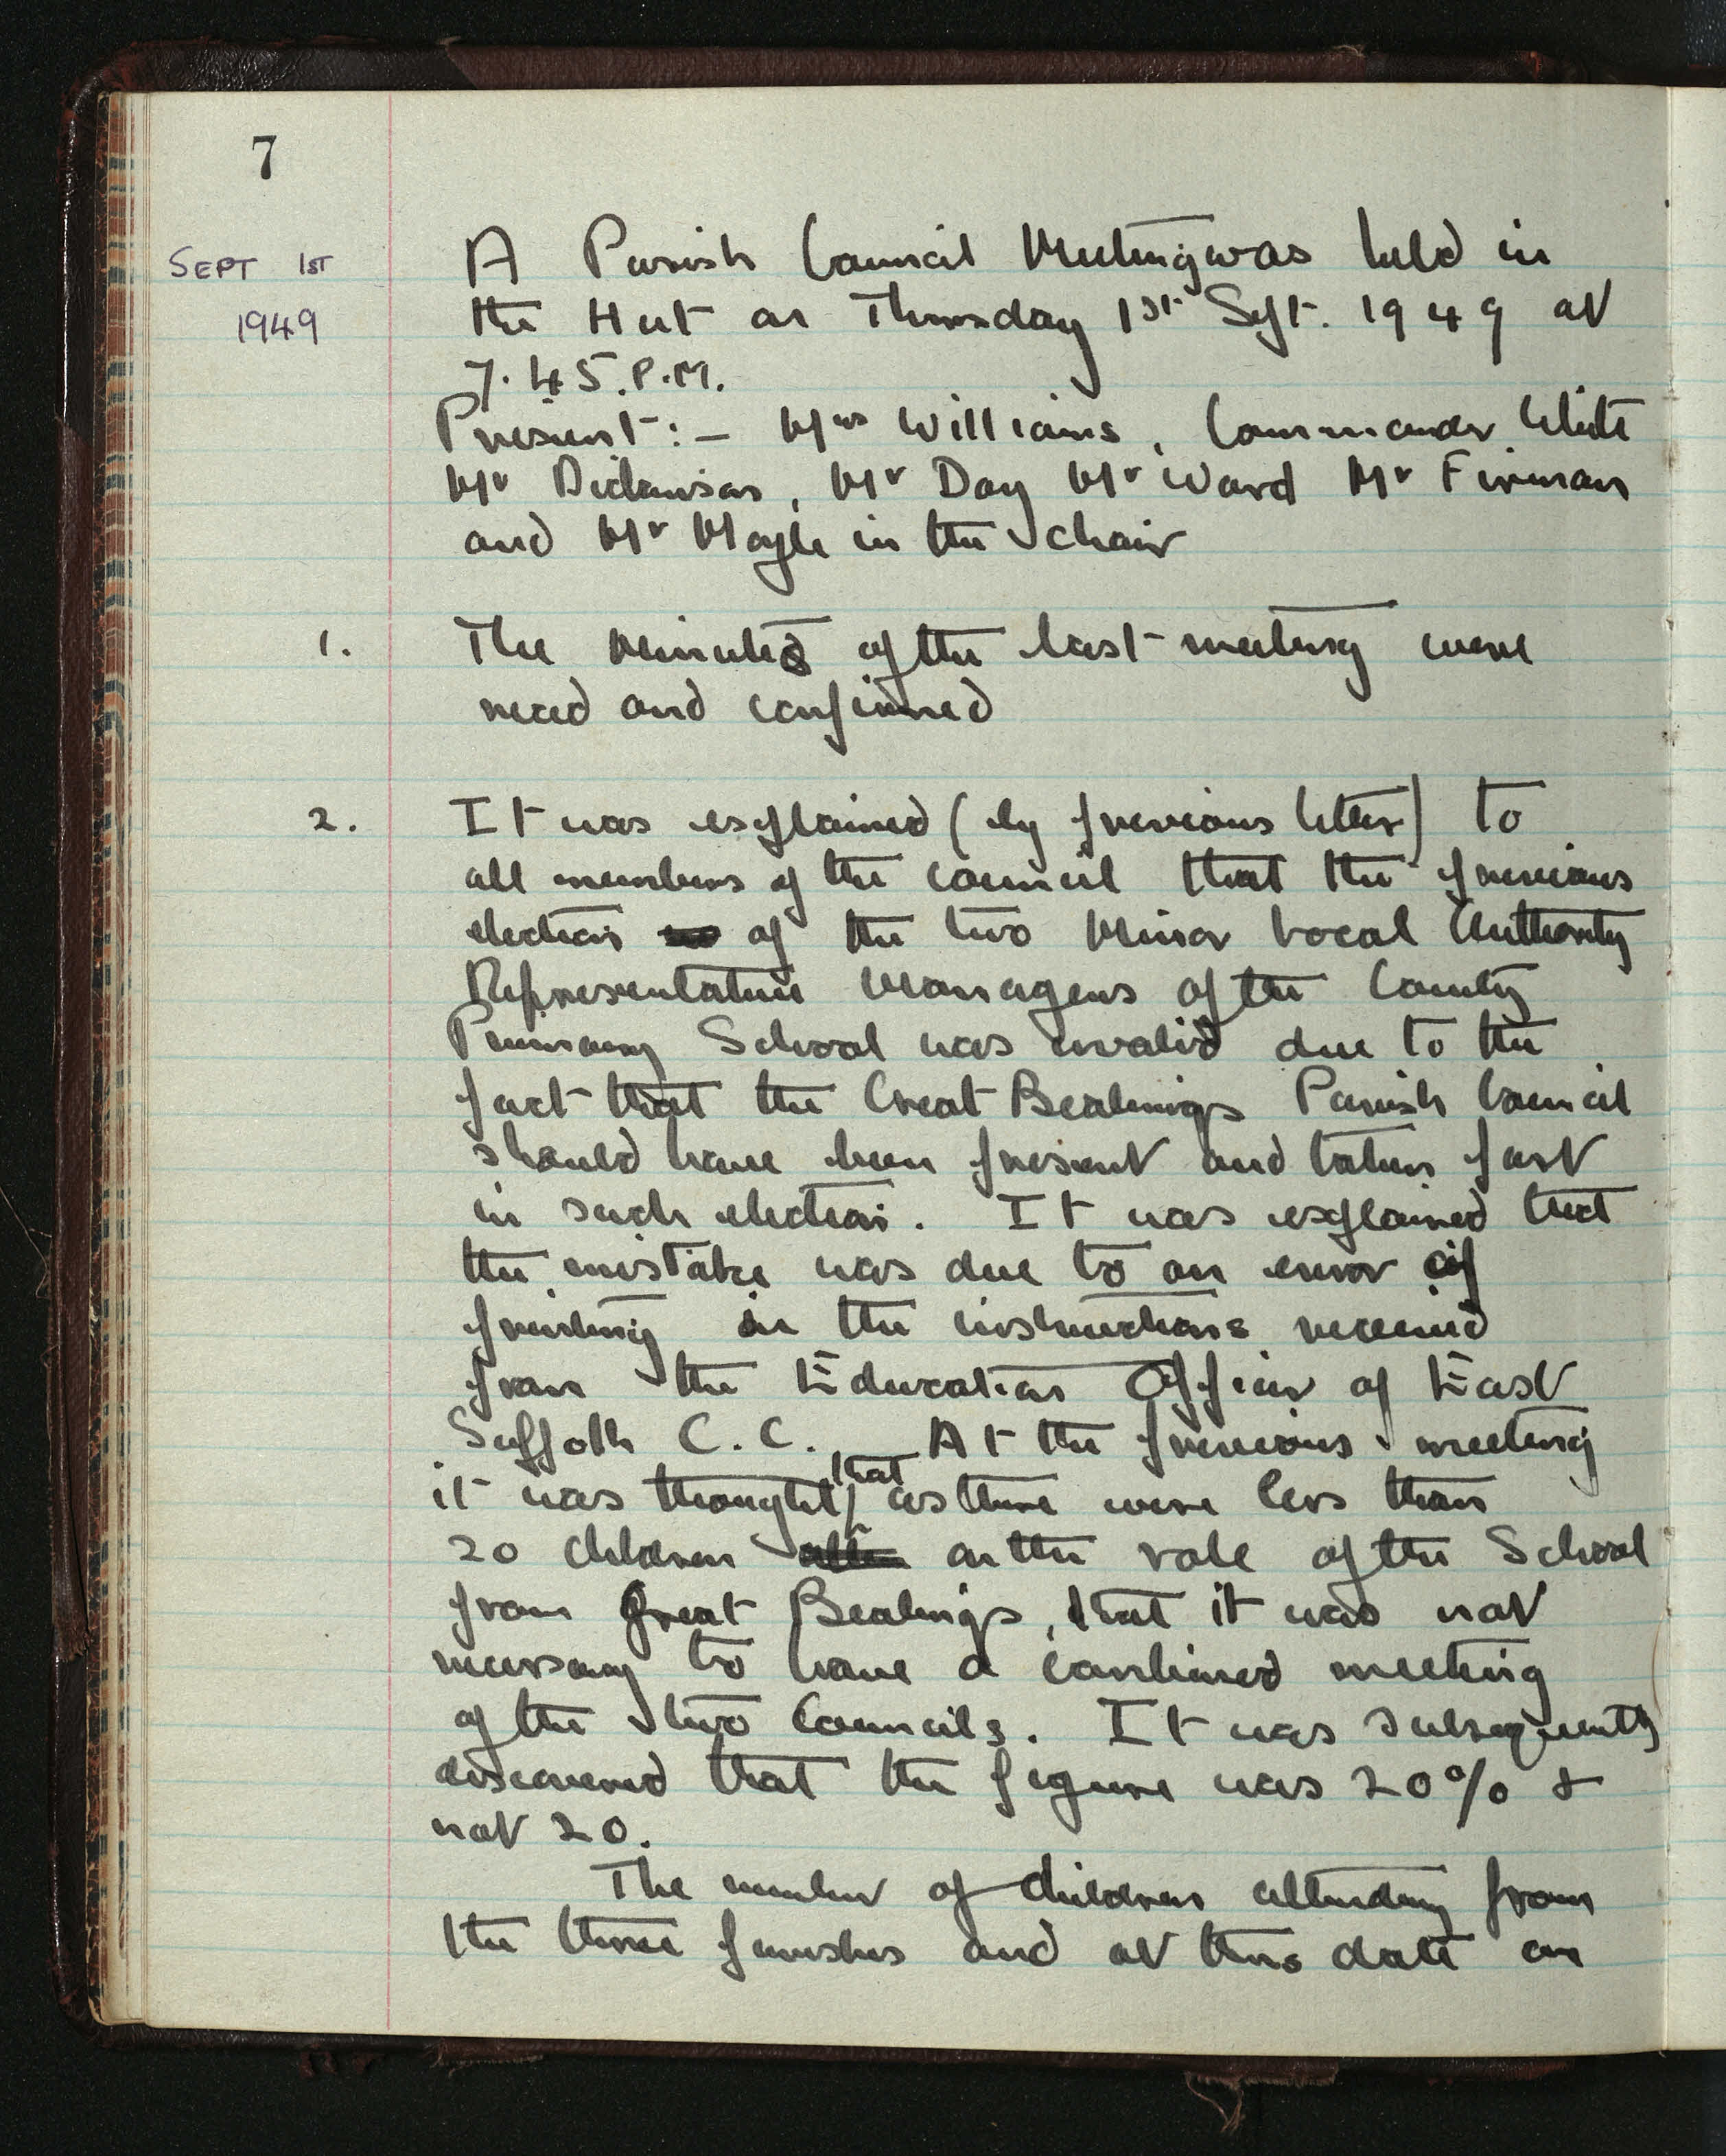 7
SEPT 1ST
1949
A Parish Council Meeting was held in
the Hut on Thursday 1st Sept. 1949 at
7.45.P.M.
Present:- Mrs Williams, Commander White
Mr Dickinson, Mr Day Mr Ward Mr Firman
and Mr Mayle in the chair
1. The Minutes of the last meeting were
read and confirmed
2. It was explained (by previous letter) to
all members of the council that the previous
election of the two Minor Local Authority
Representative Managers of the County
Primary School was invalid due to the
fact that the Great Bealings Parish Council
should have been present and taken part
in such election. It was explained that
the mistake was due to an error of
printing in the instructions received
from the Education Officer of East
Suffolk C.C. At the previous meeting
it was thought that as there were less than
20 children on the role of the School
from Great Bealings, that it was not
necessary to have a combined meeting
of the two Councils. It was subsequently
discovered that the figure was 20% &
not 20.
The number of children attending from
the three parishes and at this date on